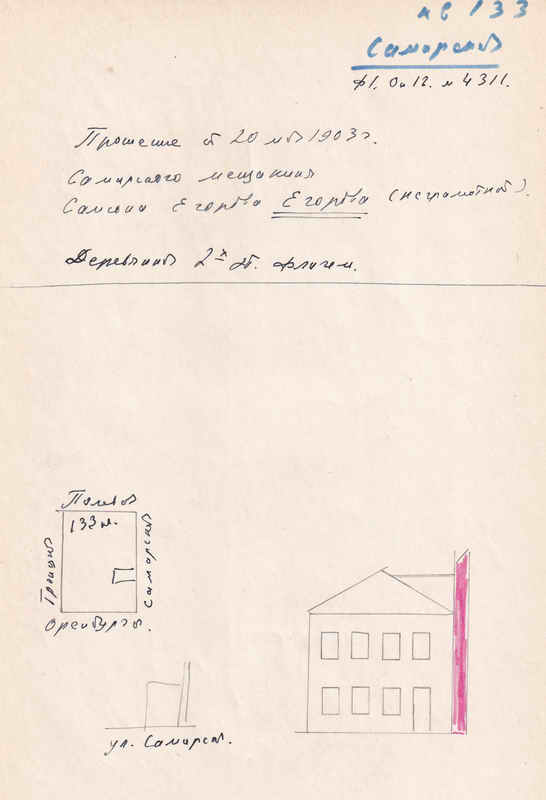 кв 133
Самарской
ф1. Оп 12. д 4311.
Прошение от 20 1903 г.
Самарского мещанина
Самсона Егорова Егорова (неграмотной).
Деревянной 2х эт. флигель.
Полевой
133 кв.
Троицкой
Самарской
Оренбургск.
ул. Самарск.